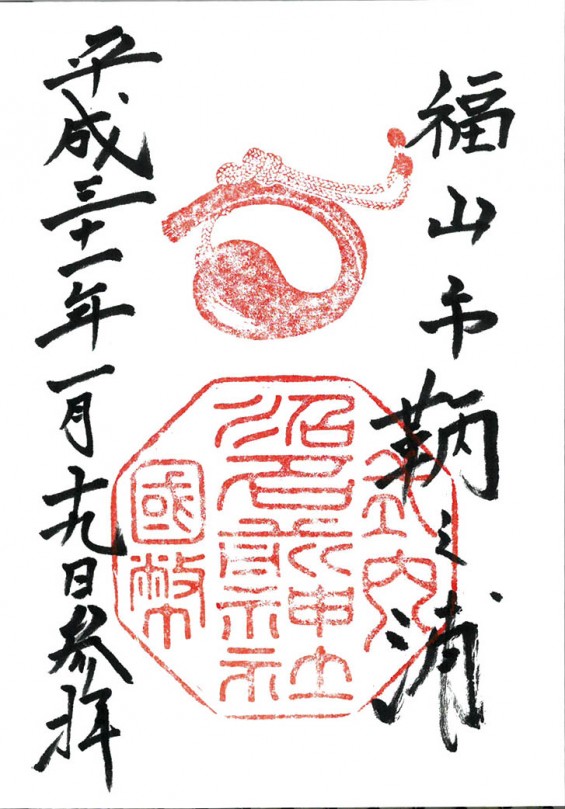 福山市鞆之浦
式内
沼名前神社
國幣
平成三十一年一月十九日参拝